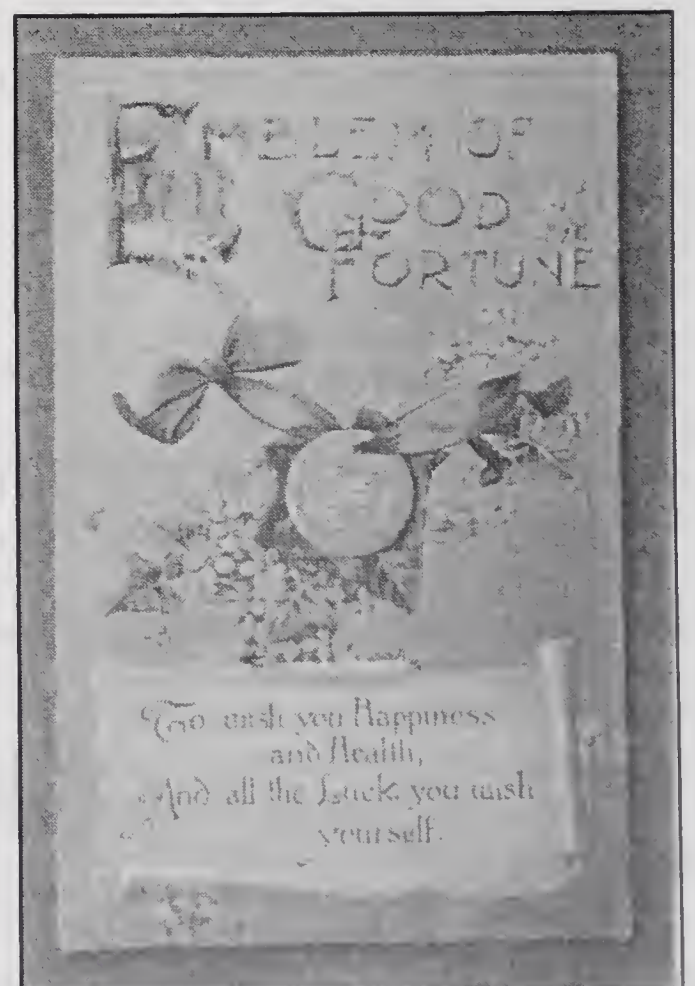 EMBLEM OF
GOOD
FORTUNE
To wish you Happiness
and Health,
And all the Luck you wish
yourself.